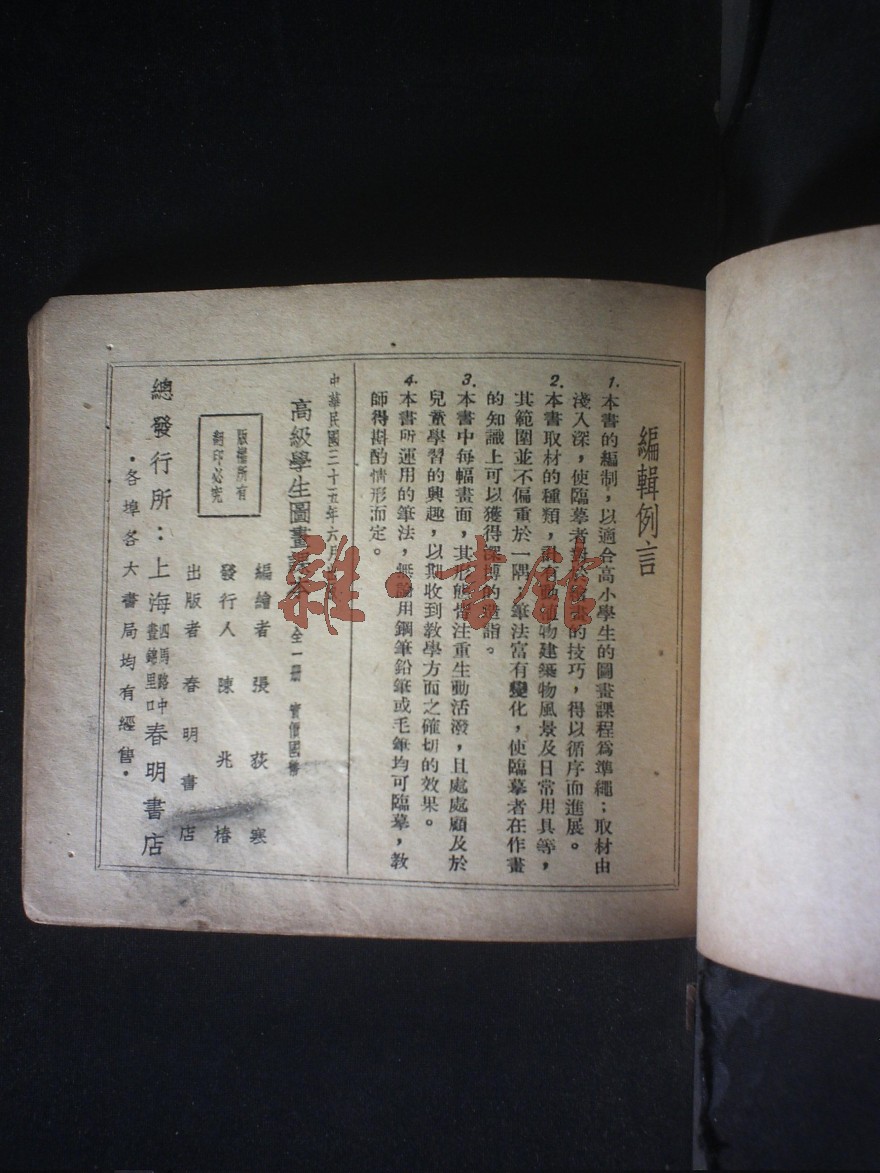 編輯例言
1.本書的編制，以適合高小學生的圖畫課程爲準繩；取材由
淺入深，使臨摹者對於圖畫的技巧，得以循序而進展。
2.本書取材的種類，計有動植物建築物風景及日常用具等，
其範圍並不偏重於一隅，筆法富有變化，使臨摹者在作畫
的知識上可以獲得深博的造詣。
3.本書中每幅畫面，其形態皆注重生動活潑，且處處顧及於
兒童學習的興趣，以期收到敎學方面之確切的效果。
4.本書所運用的筆法，無論用鋼筆鉛筆或毛筆均可臨摹，敎
師得斟酌情形而定。
中華民國三十五年六月
高級學生圖畫課本
全一册 實價國幣
編繪者 張荻寒
發行人 陳兆椿
出版者 春明書店
版權所有
翻印必究
總發行所：上海四馬路中畫錦里口春明書店
．各埠各大書局均有經售．
雜·書館